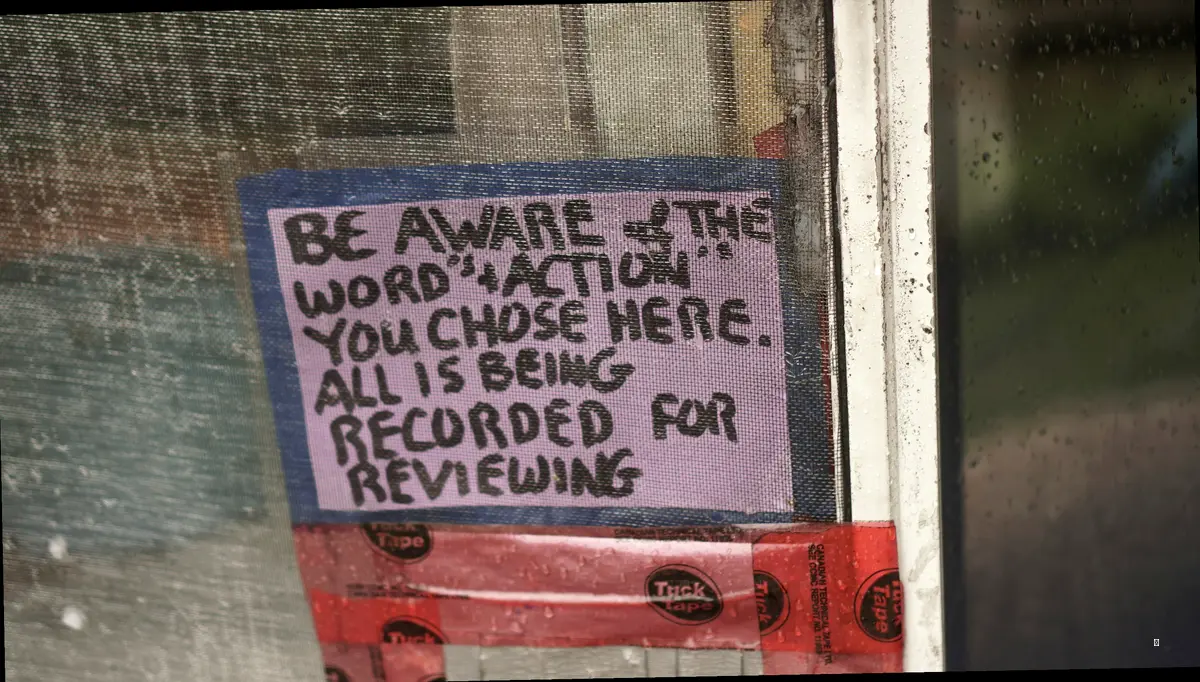 BE AWARE of THE
WORD"s + ACTION"
YOU CHOSE HERE.
ALL IS BEING
RECORDED FOR
REVIEWING
Tuck
Tape
Tuck
Tape
Tuck
Tuck
Tape
Tuck